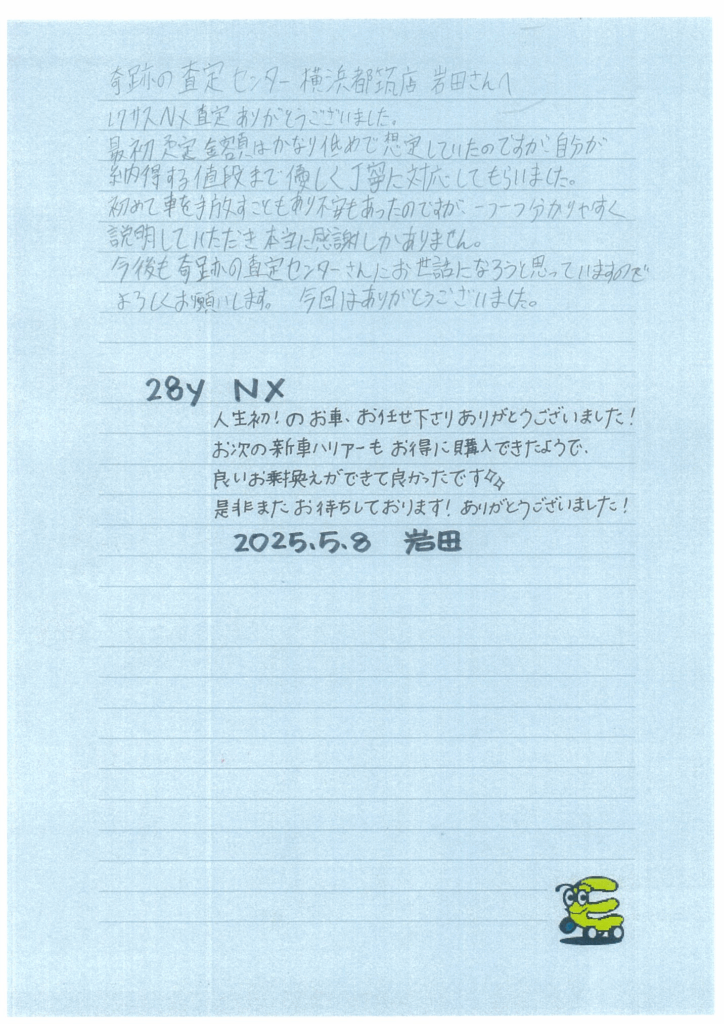 奇跡の査定センター 横浜都筑店 岩田さんへ
レクサスNX査定ありがとうございました。
最初査定金額はかなり低めで想定していたのですが、自分が
納得する値段まで優しく丁寧に対応してもらいました。
初めて車を手放すこともあり不安もあったのですが、一つ一つ分かりやすく
説明していただき本当に感謝しかありません。
今後も奇跡の査定センターさんにお世話になろうと思っていますので
よろしくお願いします。 今回はありがとうございました。
28y NX
人生初!のお車、お任せ下さりありがとうございました!
お次の新車ハリアーもお得に購入できたようで、
良いお乗換えができて良かったです
是非またお待ちしております!ありがとうございました!
2025.5.8 岩田